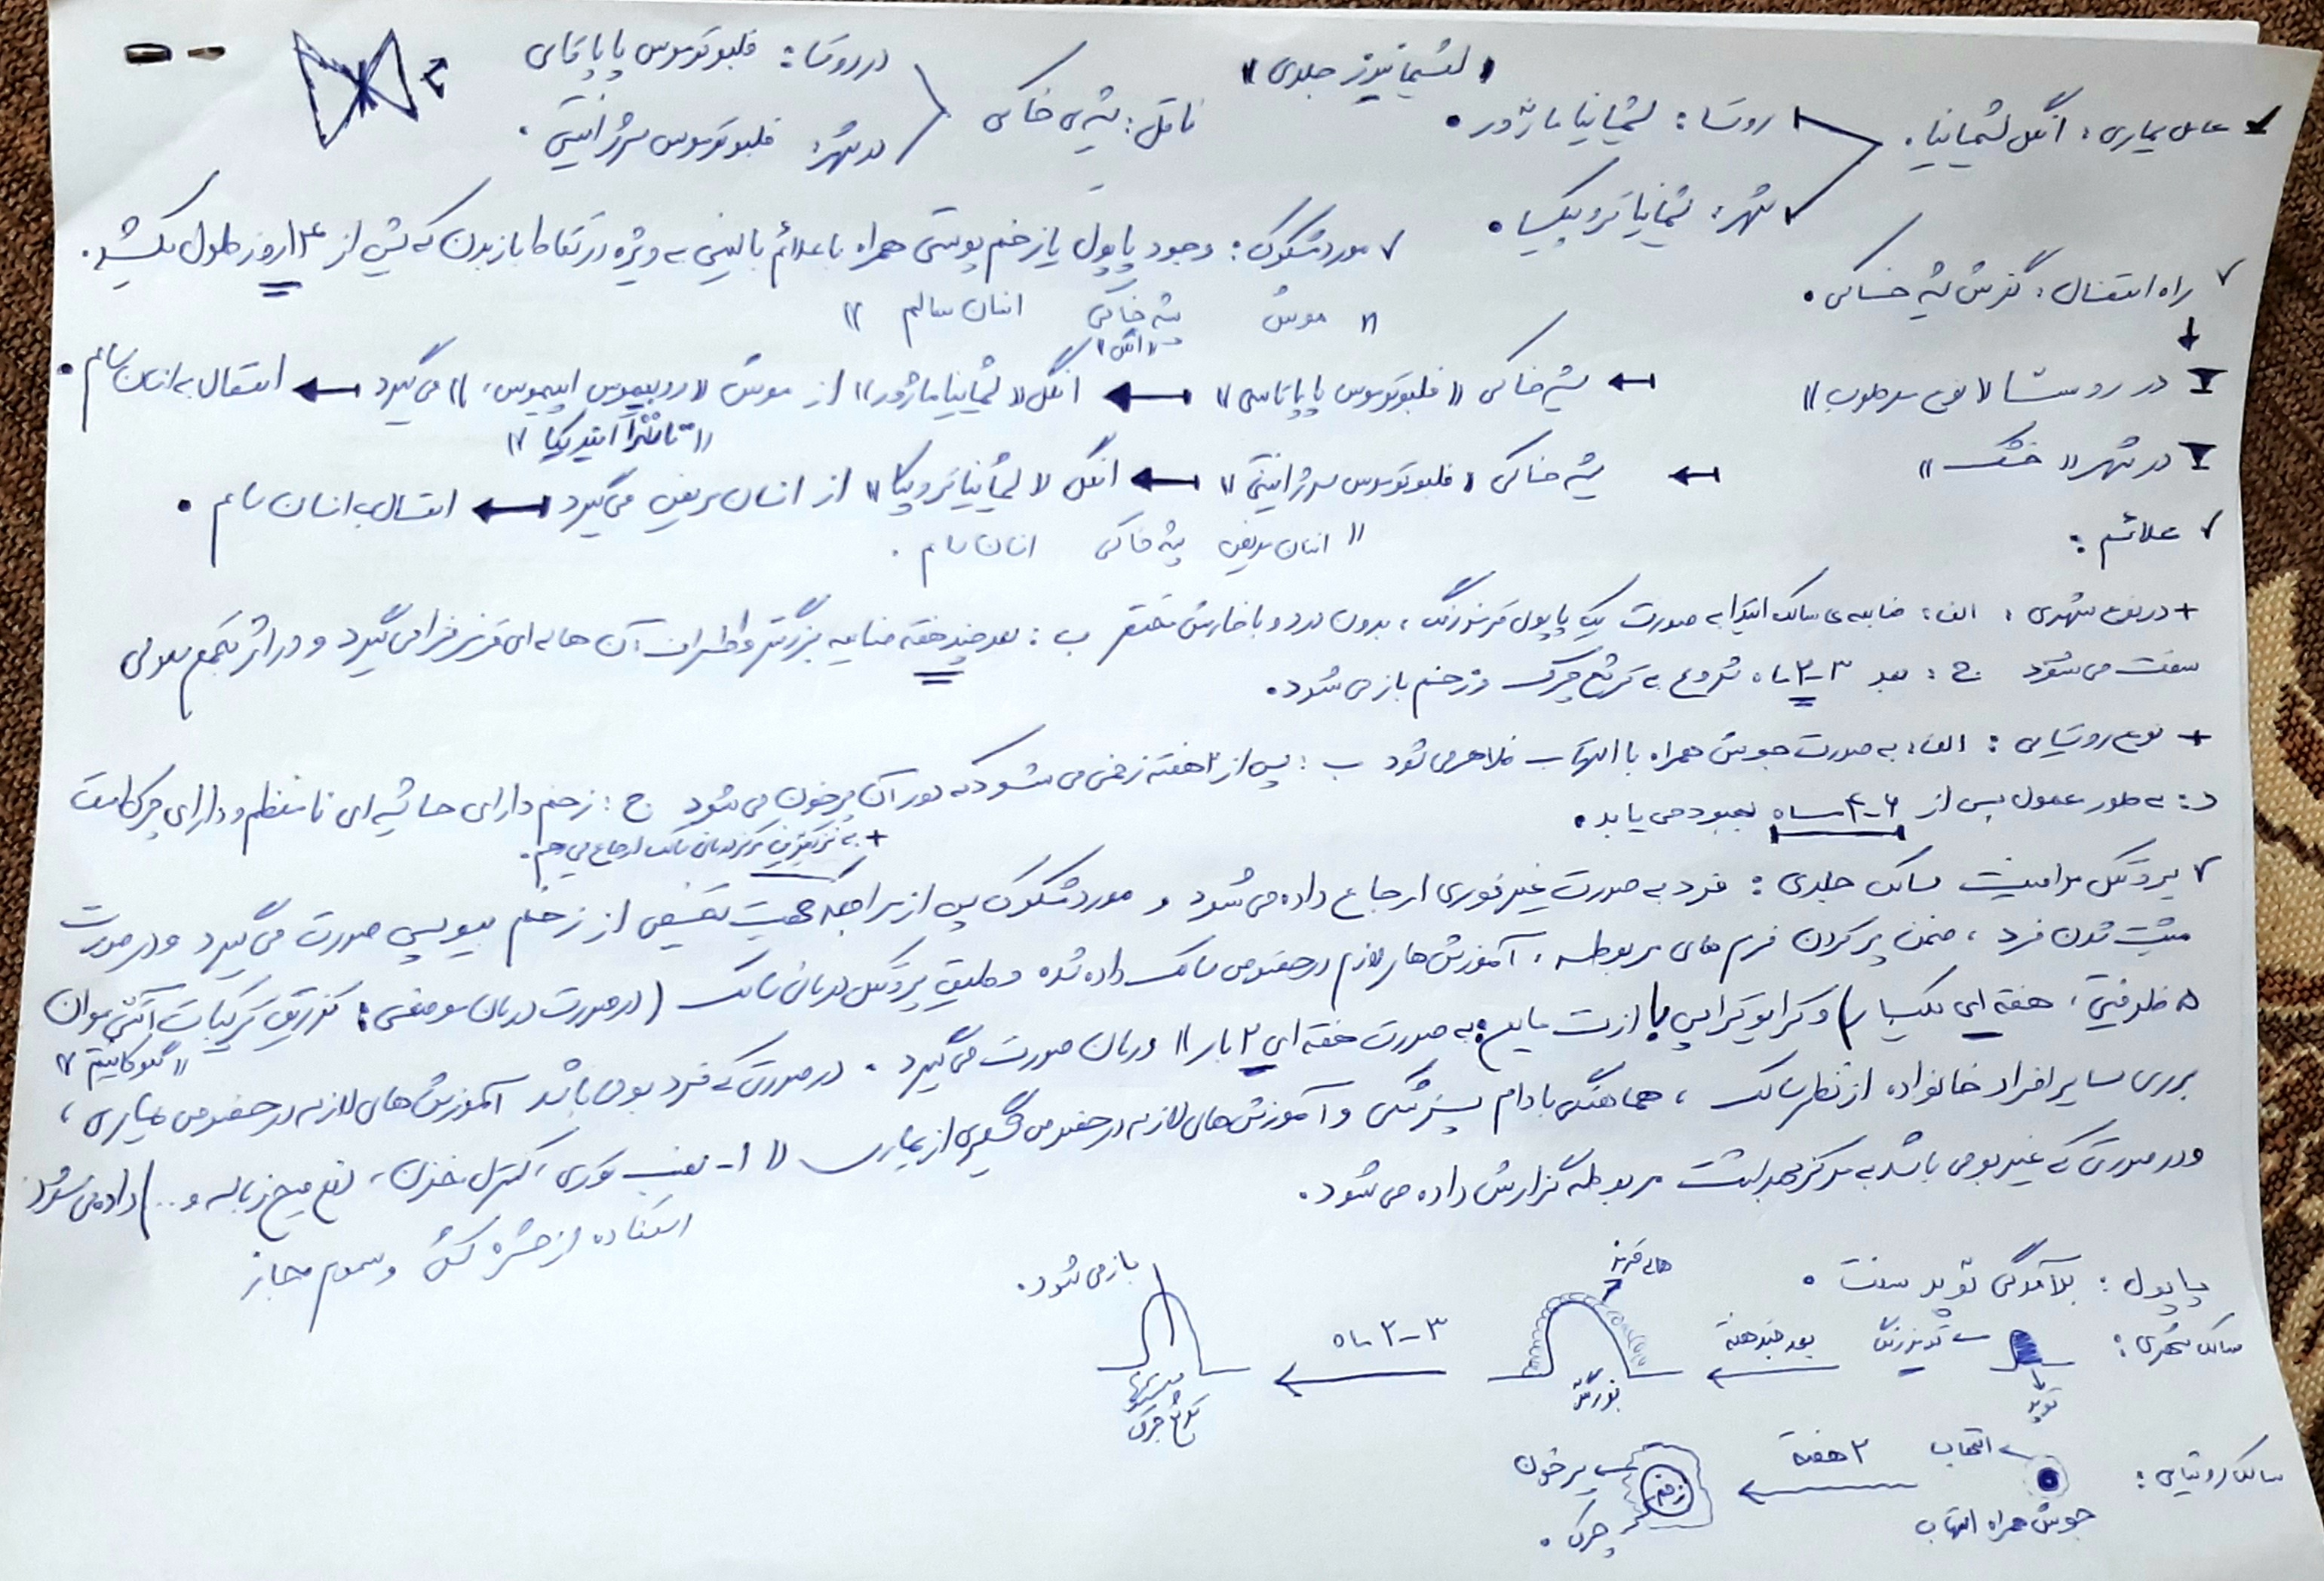 « لشمانیوز جلدی »
✓ عامل بیماری : انگل لشمانیا .
روستا : لشمانیا ماژور .
شهر : لشمانیا تروپیکا .
ناقل : پشه ی خاکی
در روستا : فلبوتوموس پاپاتاسی
در شهر : فلبوتوموس سرژانتی .
✓ مورد مشکوک : وجود پاپول یا زخم پوستی همراه با علائم بالینی به ویژه در نقاط باز بدن که بیش از ۱۴ روز طول بکشد .
✓ راه انتقال : گزش پشه خاکی .
« موش پشه خاکی انسان سالم »
در روستا « نوع مرطوب » ← پشه خاکی « فلبوتوموس پاپاتاسی » ← انگل « لشمانیا ماژور » از موش « رومبومیس اپیموس ، » می گیرد ← انتقال به انسان سالم .
« تاترا ایندیکا »
در شهر « خشک » ← پشه خاکی « فلبوتوموس سرژانتی » ← انگل « لشمانیا تروپیکا » از انسان مریض می گیرد ← انتقال به انسان سالم .
« انسان مریض پشه خاکی انسان سالم .
✓ علائم :
+ در نوع شهری : الف : ضایعه ی سالک ابتدا به صورت یک پاپول قرمز رنگ ، بدون درد و با خارش مختصر ب : بعد چند هفته ضایعه بزرگتر و اطراف آن هاله ای قرمز فرا می گیرد و در اثر تجمع سلولی
سفت می شود ج : بعد ۳-۲ ماه شروع به ترشح چرک و زخم باز می شود .
+ نوع روستایی : الف : به صورت جوش همراه با التهاب ظاهر می شود ب : پس از ۲ هفته زخمی می شود که دور آن پرخون می شود ج : زخم دارای حاشیه ای نامنظم و دارای چرک است
د : به طور معمول پس از ۶-۴ ماه بهبود می یابد .
+ به نزدیکترین مرکز درمانی سالک ارجاع می دهیم .
✓ پروتکل مراقبت سالک جلدی : فرد به صورت غیر فوری ارجاع داده می شود و مورد مشکوک پس از مراجعه جهت تشخیص از زخم بیوپسی صورت می گیرد و در صورت
مثبت شدن فرد ، ضمن پر کردن فرم های مربوطه ، آموزش های لازم در خصوص سالک داده شده و طبق پروتکل درمانی سالک ( در صورت درمان موضعی : تزریق ترکیبات آنتی موان
« گلوکانتیم »
۵ ظرفیتی ، هفته ای یکبار ) و کرایوتراپی با ازت مایع : به صورت هفته ای ۲ بار » درمان صورت می گیرد . در صورتی که فرد بومی باشد آموزش های لازم در خصوص بیماری ،
بررسی سایر افراد خانواده از نظر سالک ، هماهنگی با دام پزشکی و آموزش های لازم در خصوص پیشگیری از بیماری « ۱- نصب توری ، کنترل مخزن ، دفع صحیح زباله و ... ) داده می شود
استفاده از حشره کش و سموم مجاز
و در صورتی که غیر بومی باشد به مرکز بهداشت مربوطه گزارش داده می شود .
پاپول : برآمدگی توپر سفت .
سالک شهری : توپر قرمز رنگ ← بعد چند هفته بزرگتر هاله قرمز ← ۳-۲ ماه باز می شود . ترشح چرک
سالک روستایی : التهاب جوش همراه التهاب ← ۲ هفته زخم پرخون چرک .